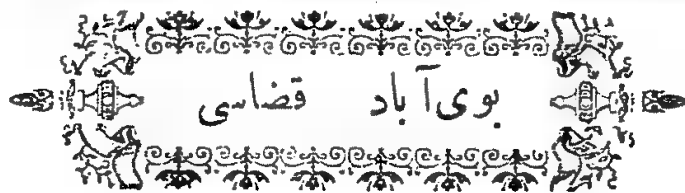 بوی آباد قضاسی